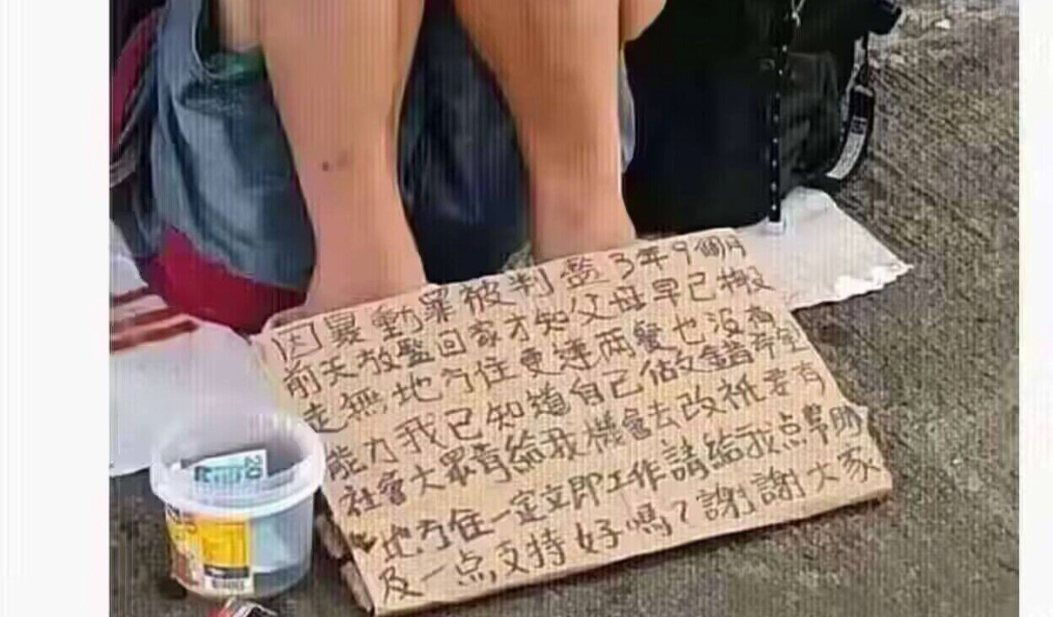 因暴動罪被判監3年9個月
前天放監回家才知父母早已搬
走無地方住更連兩餐也沒有
能力我已知道自己做錯
社會大眾肯給我機會去改祇要有
地方住一定立即工作請給我点幫助
及一点支持好嗎?謝謝大家
20